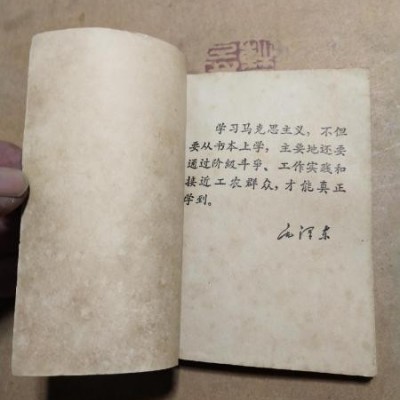 学习马克思主义，不但
要从书本上学，主要地还要
通过阶级斗争、工作实践和
接近工农群众，才能真正
学到。
毛泽东